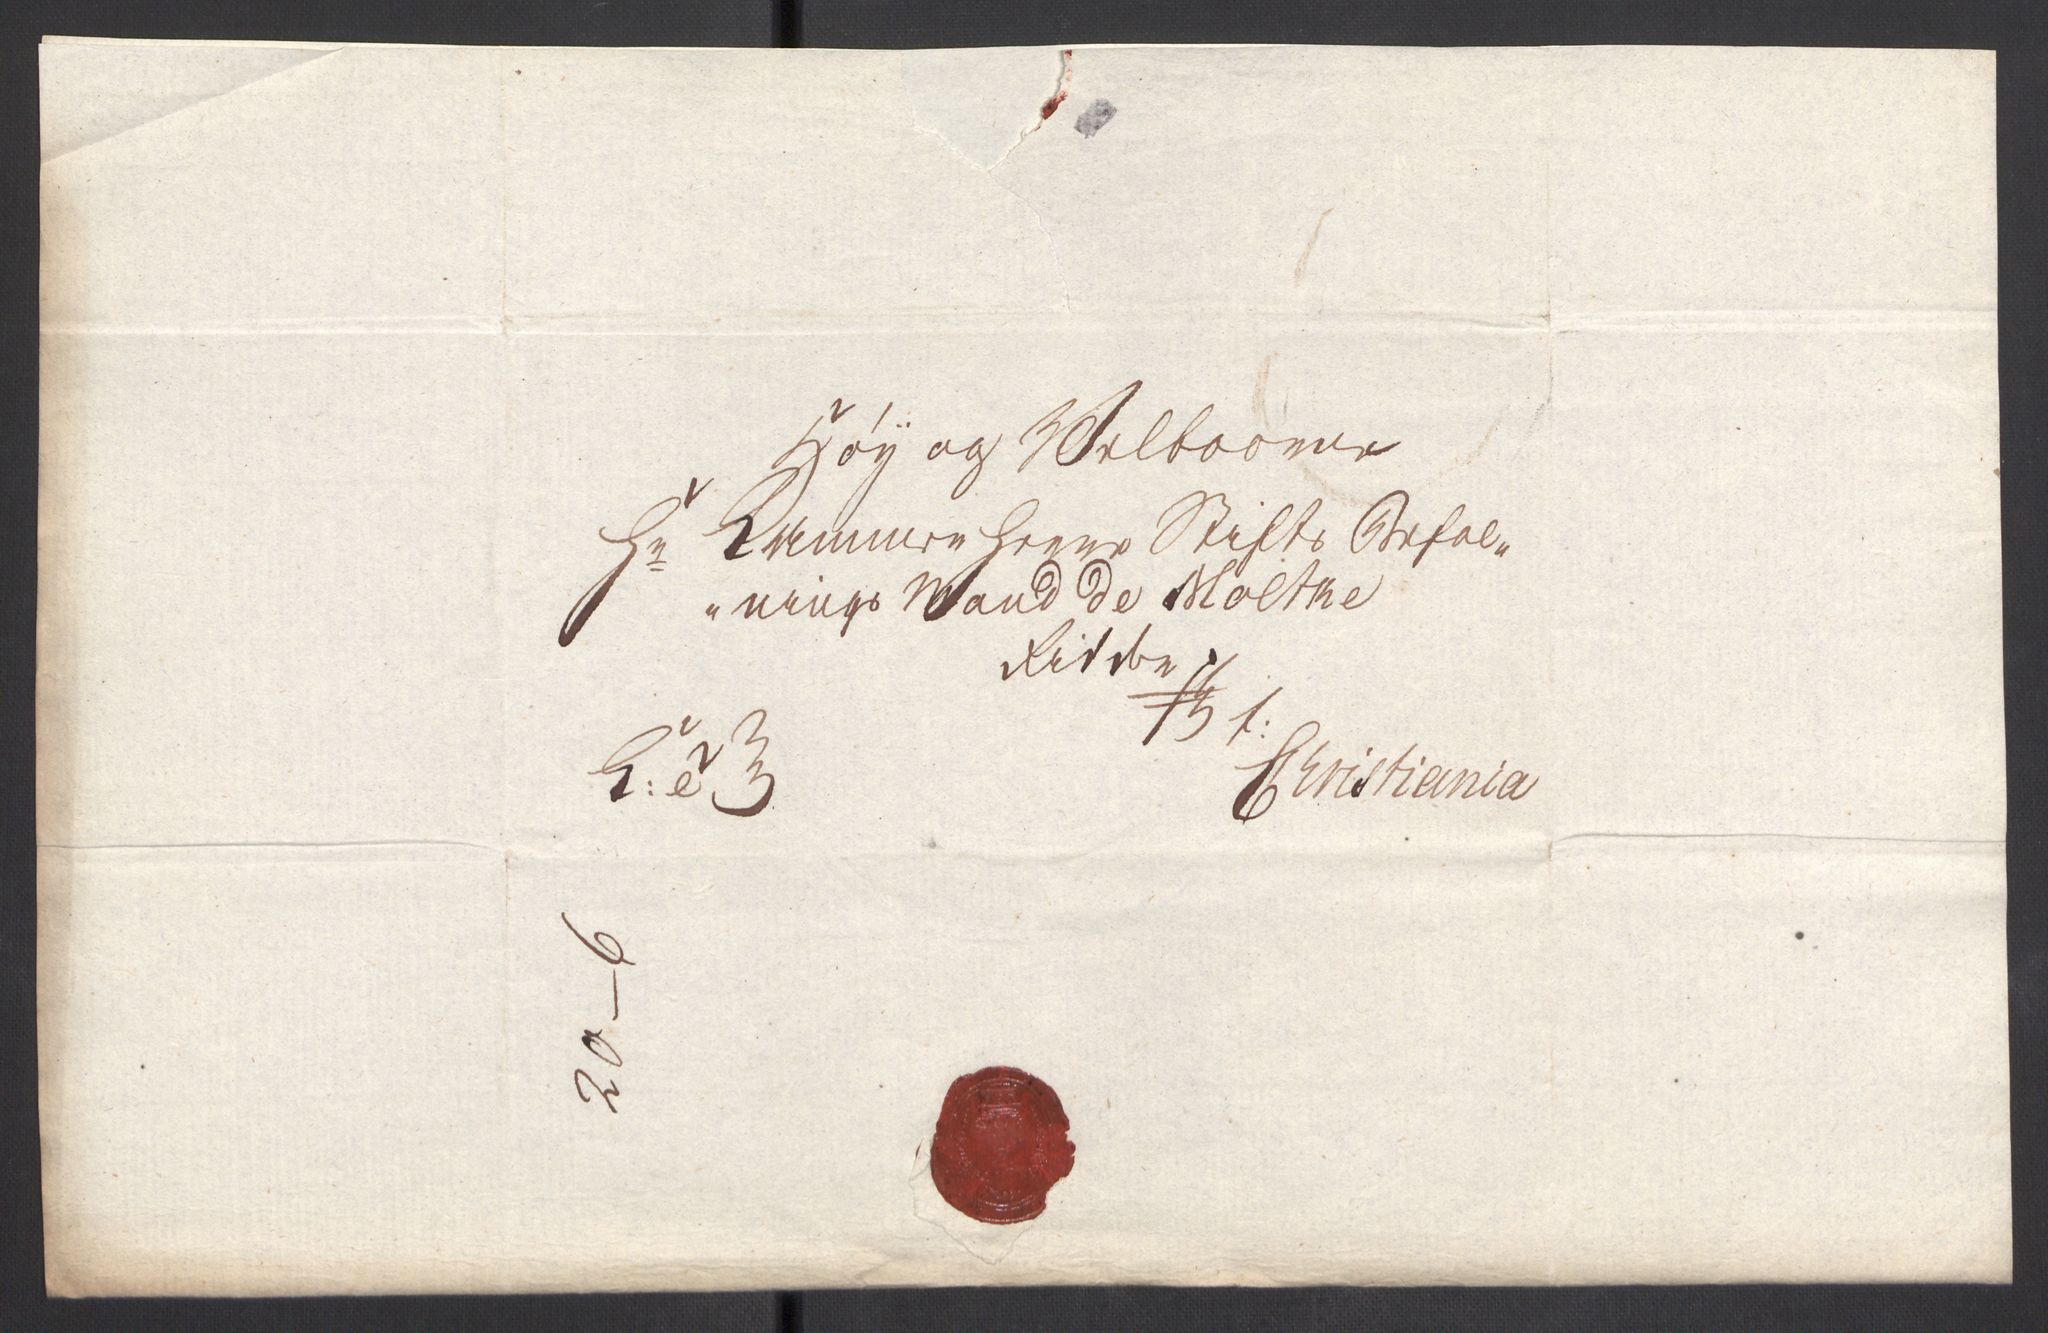 Höÿ og Velbaarne
Hr Cammer Herre Stifts Befal„
„nings Mand de Moltke
Ridder
f:
Christiania
20 – 6